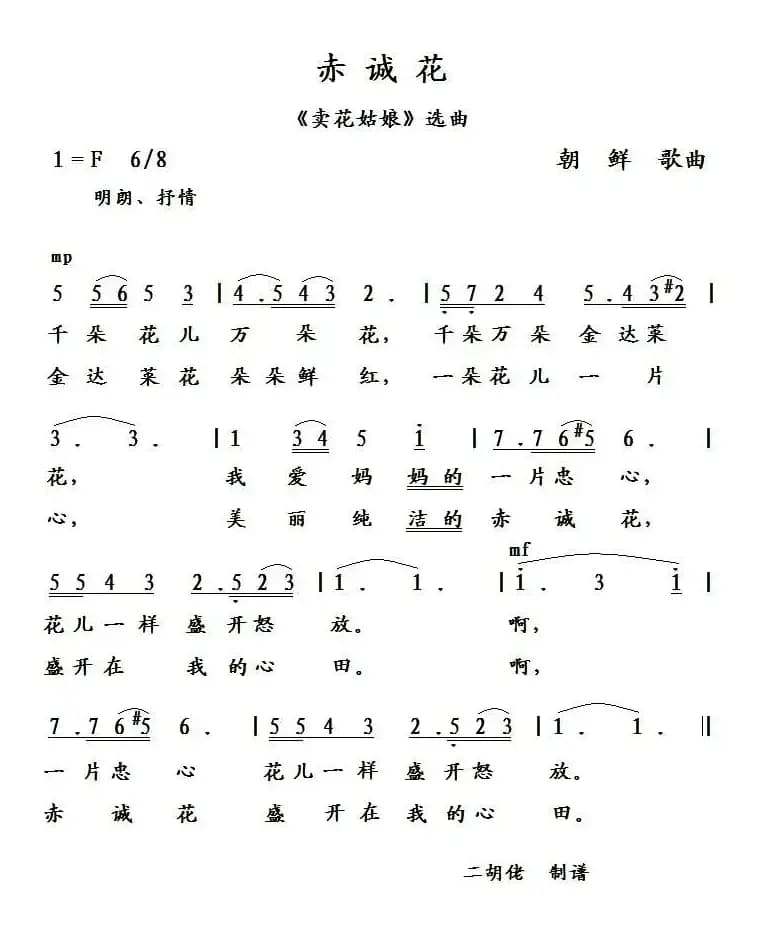 赤诚花
《卖花姑娘》选曲
1=F 6/8 朝 鲜 歌曲
明朗、抒情
mp
5 56 5 3 | 4.543 2. | 5724 5.43#2 |
千朵花儿万朵花，千朵万朵金达莱
金达莱花朵朵鲜红，一朵花儿一片
3. 3. | 1 34 5 1 | 7.76#5 6. |
花，我爱妈妈的一片忠心，
心，美丽纯洁的赤诚花，
mf
5543 2.523 | 1. 1. | 1. 3 1 |
花儿一样盛开怒放。啊，
盛开在我的心田。啊，
7.76#5 6. | 5543 2.523 | 1. 1. ‖
一片忠心花儿一样盛开怒放。
赤诚花盛开在我的心田。
二胡佬 制谱